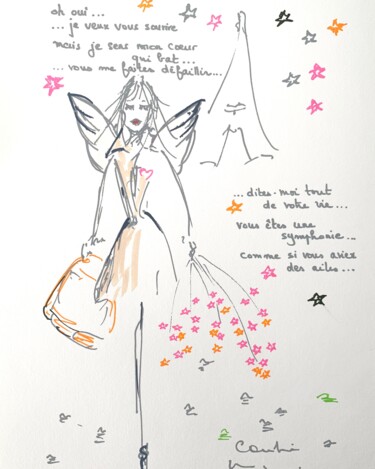 oh oui...
... je veux vous sourire
mais je sens mon cœur
qui bat...
... vous me faites défaillir...
... dites-moi tout
de votre vie...
vous êtes une
symphonie...
comme si vous aviez
des ailes...